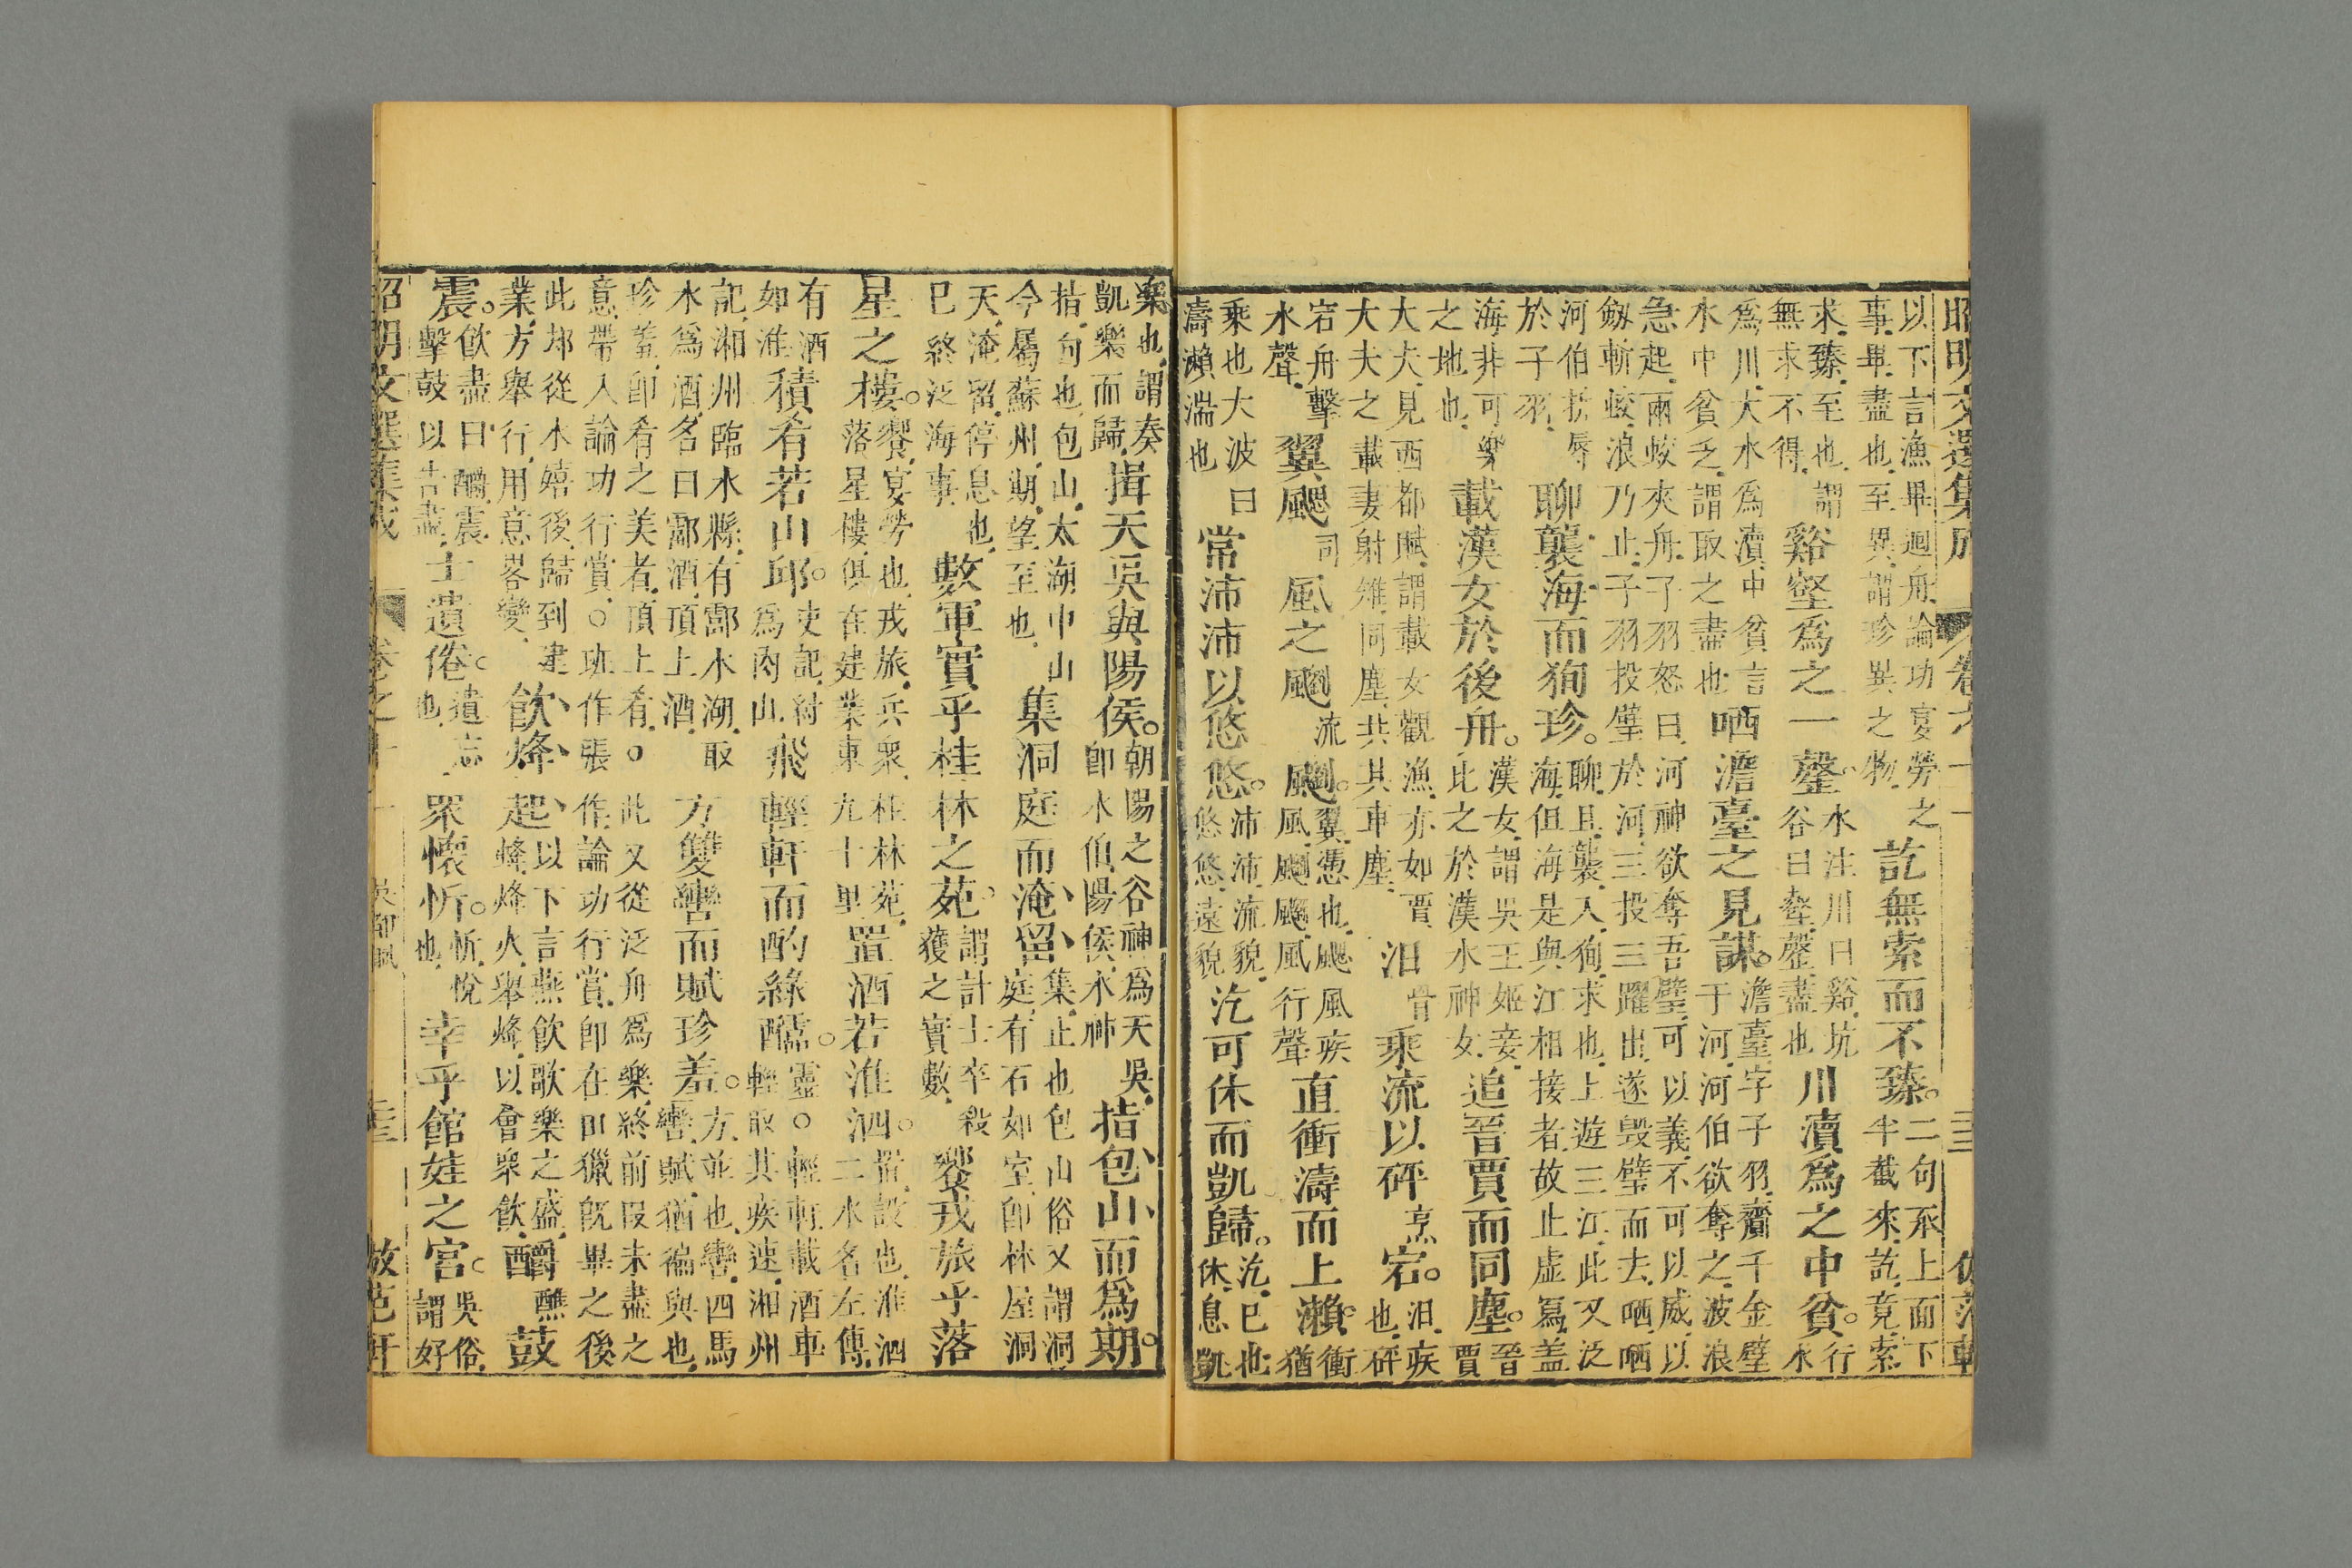 昭明文選集成 卷六
以下言漁畢迴舟論功宴勞之事畢盡也至異謂珍異之物訖無索而不臻。二句承上面下半截來訖竟索
求臻至也謂無求不得谿壑爲之一罄。水注川曰谿坑谷曰壑罄盡也川瀆爲之中貧。行水
爲川大水爲瀆中貧言水中貧乏謂取之盡也哂澹臺之見謀。澹臺字子羽齎千金璧于河河伯欲奪之波浪
急起兩蛟夾舟子羽怒曰河神欲奪吾璧可以義不可以威以劔斬蛟浪乃止子羽投璧於河三投三躍出遂毁璧而去哂哂
河伯抗辱於子羽聊襲海而狥珍。聊且襲入狥求也上遊三江此又泛海但海是與江相接者故止虛寫盖
海非可樂之地也載漢女於後舟。漢女謂吳王姬妾比之於漢水神女追晉賈而同塵。晉賈
大夫見西都賦謂載女觀漁亦如賈大夫之載妻射雉同塵共其車塵汨骨乘流以砰烹宕。汨疾也砰
宕舟擊水聲翼颸司風之飅流飅。翼憑也颸風疾風飅飅風行聲直衝濤而上瀨。衝猶
乘也大波曰濤瀨湍也常沛沛以悠悠。沛沛流貌悠悠遠貌汔可休而凱歸。汔已也休息凱
樂也謂奏凱樂而歸揖天吳與陽侯。朝陽之谷神爲天吳卽水伯陽侯水神指包山而爲期。
指向也包山太湖中山今屬蘇州期望至也集洞庭而淹留。集止也包山俗又謂洞庭有石如室卽林屋洞
天淹留停息也已終泛海事數軍實乎桂林之苑。謂計士卒殺獲之實數饗戎旅乎落
星之樓。饗宴勞也戎旅兵衆桂林苑落星樓俱在建業東九十里置酒若淮泗。置設也淮泗二水名左傳
有酒如淮積肴若山邱。史記紂爲肉山飛輕軒而酌綠酃。靈○輕軒載酒車輕取其疾速湘州
記湘州臨水縣有酃水湖取水爲酒名曰酃酒頂上酒方雙轡而賦珍羞。方並也轡四馬轡賦猶徧與也
珍羞卽肴之美者頂上肴○此又從泛舟爲樂終前叚未盡之意帶入論功行賞○班作張作論功行賞卽在田獵旣畢之後
此却從水嬉後歸到建業方舉行用意畧變飲烽起以下言燕飲歌樂之盛烽烽火舉烽以會衆飲釂醮鼓
震。飲盡曰釂震擊鼓以告盡士遺倦。遺忘也衆懷忻。忻悅也幸乎館娃之宮。吳俗謂好
昭明文選集成 卷之 吳都賦